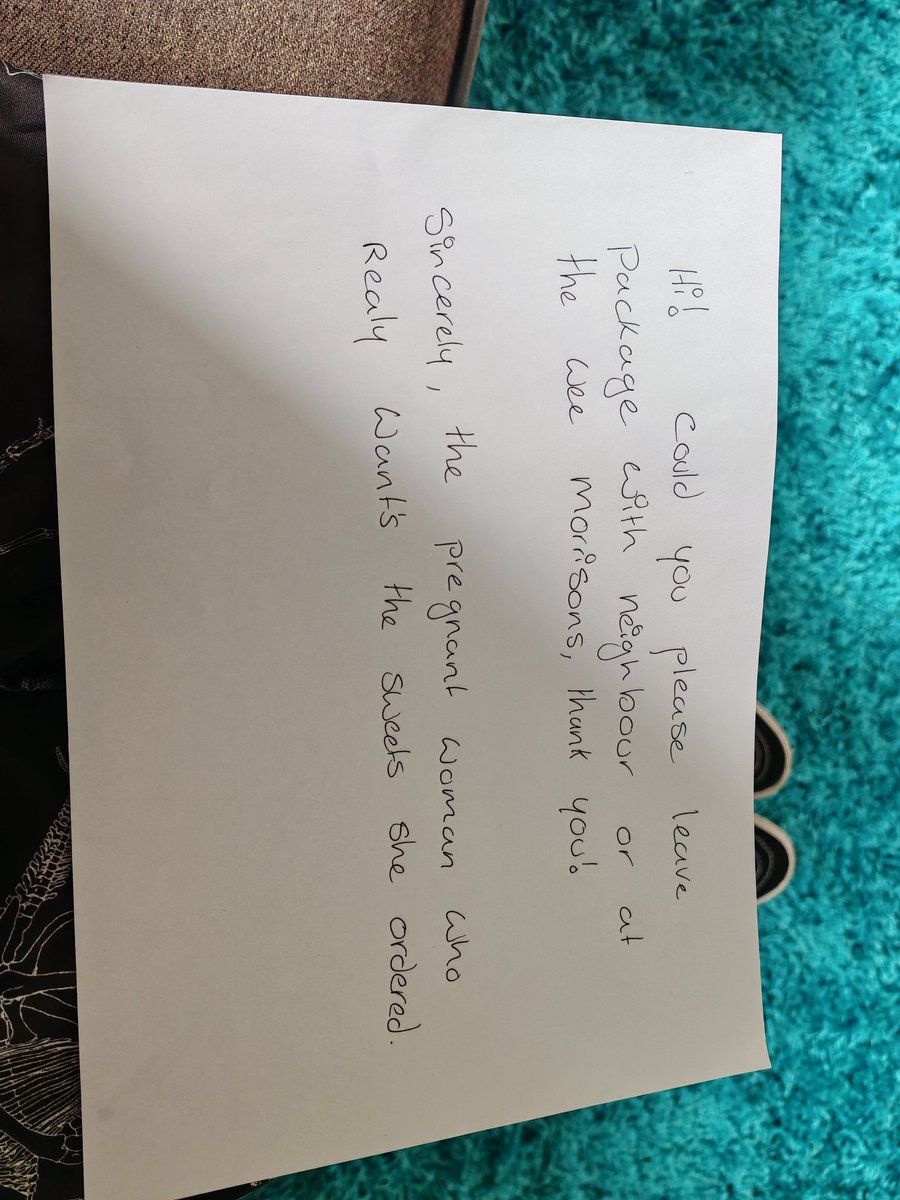 Hi! Could you please leave
Package with neighbour or at
the wee morrisons, thank you!
Sincerely, the pregnant woman who
Realy Want's the sweets she ordered.